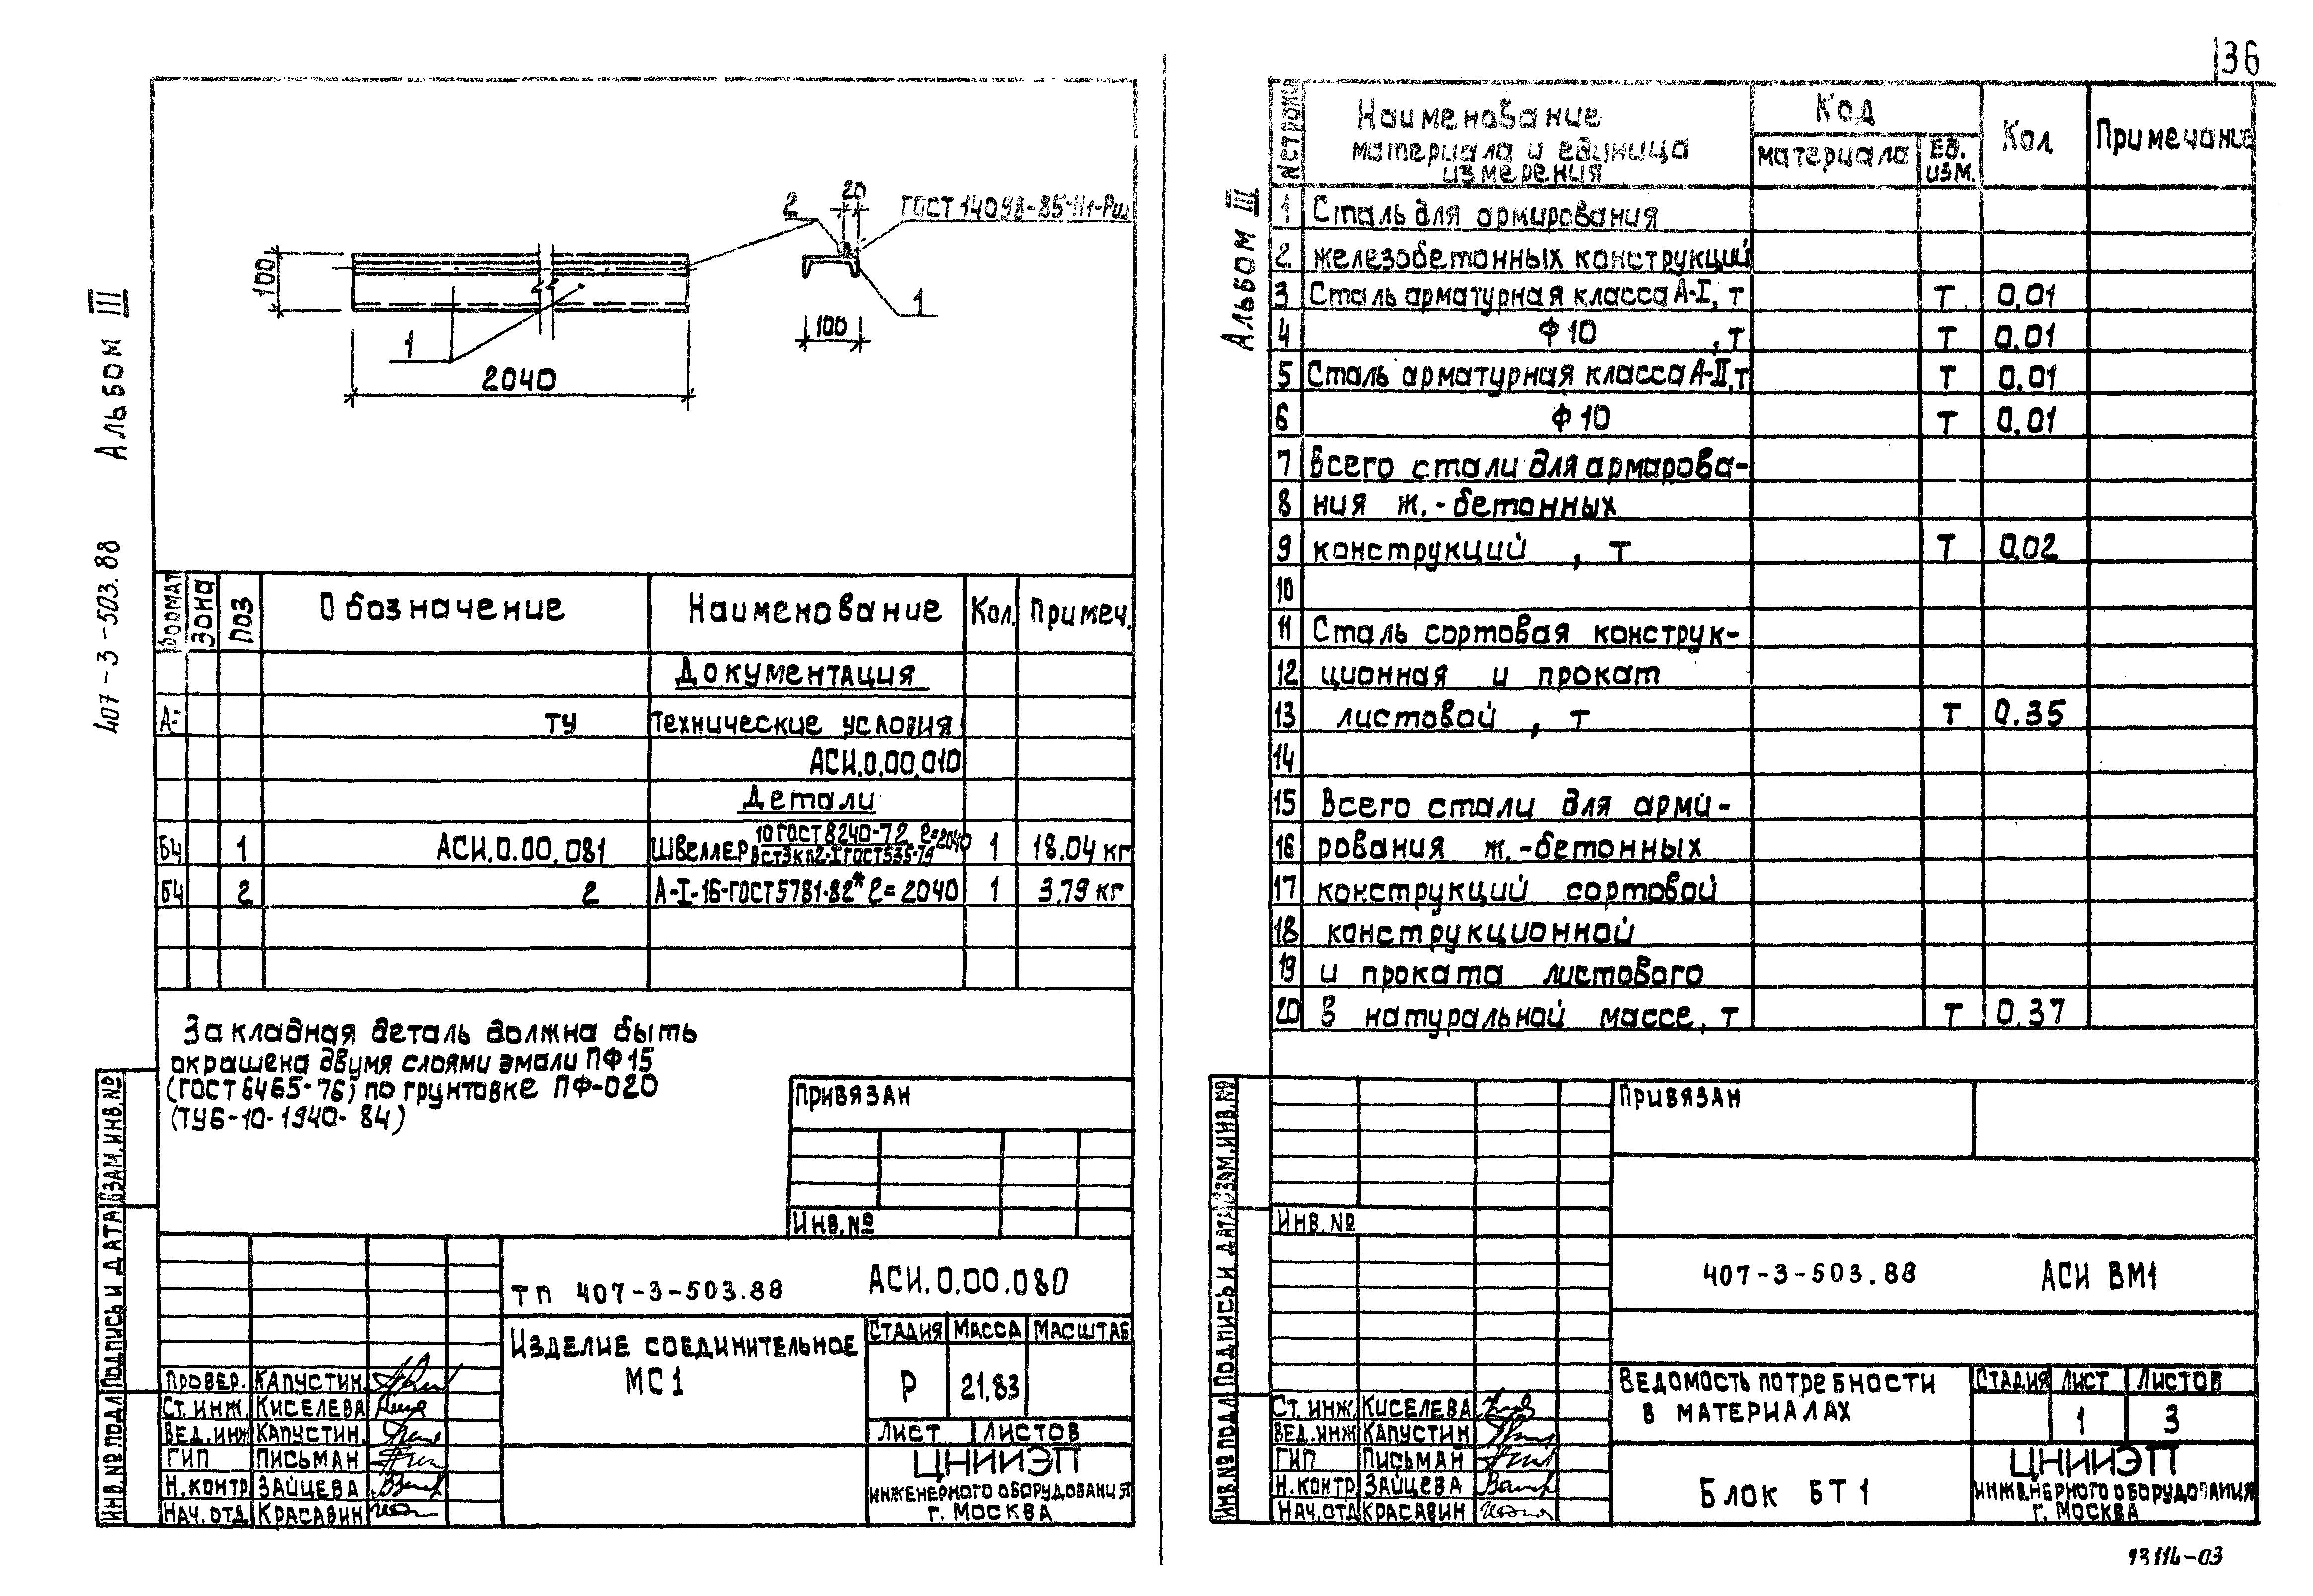 136
Альбом III
407-3-503.88
100
2040
1
2
20
ГОСТ 14098-85-Н1-Рш
1
100
Формат
Зона
Поз
Обозначение
Наименование
Кол.
Примеч.
Документация
ТУ Технические условия
АСИ.0.00.010
Детали
БЧ 1 АСИ.0.00.081 Швеллер 10 ГОСТ 8240-72 ℓ=2040 1 18.04 кг
ВСт3кп2-I ГОСТ 535-79
БЧ 2 2 А-I-16-ГОСТ 5781-82* ℓ=2040 1 3.79 кг
Закладная деталь должна быть
окрашена двумя слоями эмали ПФ15
(ГОСТ 6465-76) по грунтовке ПФ-020
(ТУ6-10-1940-84)
Привязан
Инв.№
ТП 407-3-503.88 АСИ.0.00.080
Изделие соединительное
МС1
Стадия Масса Масштаб
Р 21,83
Лист Листов
ЦНИИЭП
инженерного оборудования
г. Москва
Провер. Капустин
Ст. инж. Киселева
Вед. инж Капустин.
ГИП Письман
Н. контр Зайцева
Нач. отд Красавин
Инв.№ подл
Подпись и дата
Взам.инв.№
Альбом III
№ строки
Наименование
материала и единица
измерения
Код
материала
Ед.
изм.
Кол
Примечание
1 Сталь для армирования
2 железобетонных конструкций
3 Сталь арматурная класса А-I, т т 0.01
4 Ф 10 , т т 0.01
5 Сталь арматурная класса А-II, т т 0.01
6 Ф 10 т 0.01
7 Всего стали для армарова-
8 ния ж.-бетонных
9 конструкций , т т 0.02
10
11 Сталь сортовая конструк-
12 ционная и прокат
13 листовой , т т 0.35
14
15 Всего стали для арми-
16 рования ж.-бетонных
17 конструкций сортовой
18 конструкционной
19 и проката листового
20 в натуральной массе, т т 0.37
Привязан
Инв.№
407-3-503.88 АСИ ВМ1
Ведомость потребности
в материалах
Стадия Лист Листов
1 3
Блок БТ1
ЦНИИЭП
инженерного оборудования
г. Москва
Ст. инж. Киселева
Вед. инж Капустин
ГИП Письман
Н. контр Зайцева
Нач. отд Красавин
Инв.№ подл
Подпись и дата
Взам.инв.№